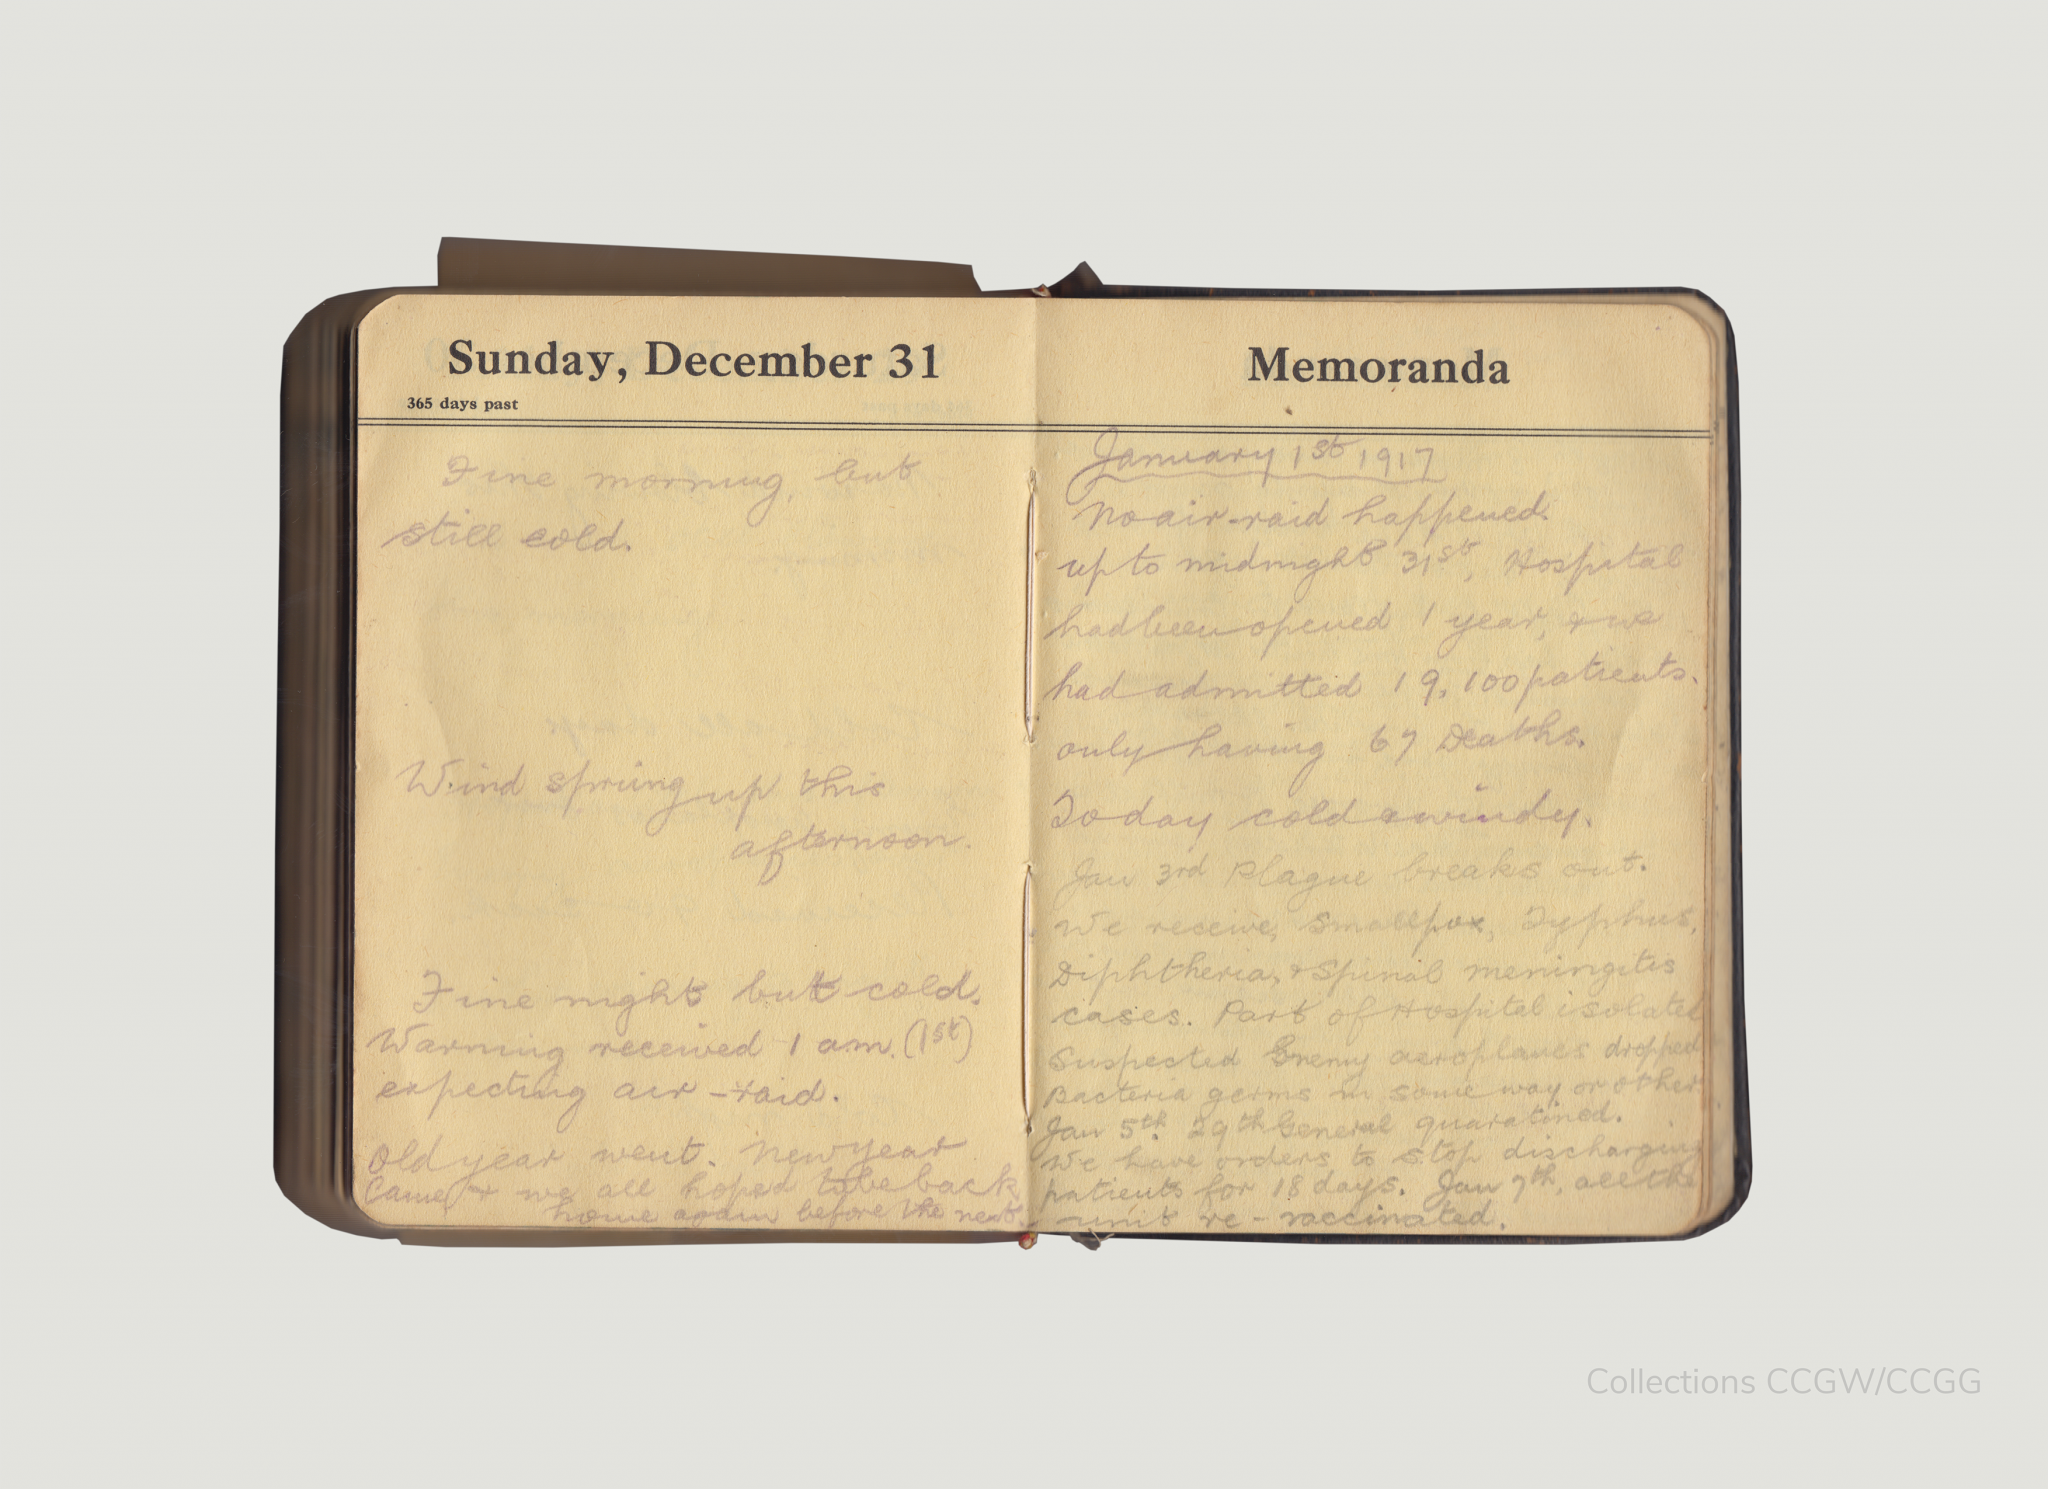 Sunday, December 31
365 days past
Fine morning, but
still cold.
Wind sprung up this
afternoon.
Fine night but cold.
Warning received 1 am. (1st)
expecting air-raid.
Old year went. New year
Came, & we all hoped to be back
home again before the next.
Memoranda
January 1st 1917
No air-raid happened.
up to midnight 31st, Hospital
had been opened 1 year, & we
had admitted 19,100 patients.
only having 67 Deaths.
Today cold & windy.
Jan 3rd Plague breaks out.
We receive, Smallpox, Typhus,
Diphtheria, & Spinal meningitis
cases. Part of Hospital isolated
Suspected Enemy aeroplanes dropped
Bacteria germs in some way or other
Jan 5th. 29th General quaratined.
We have orders to stop discharging
patients for 18 days. Jan 7th, all the
unit re-vaccinated.
Collections CCGW/CCGG